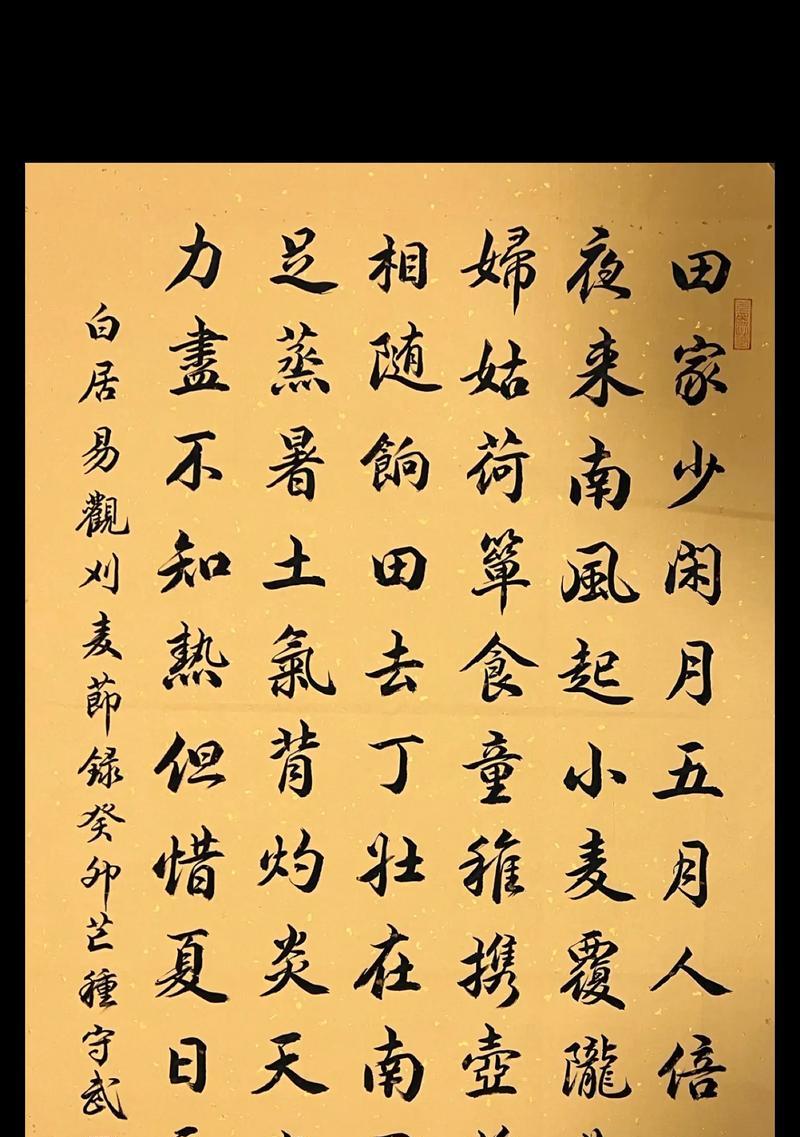 田家少闲月五月人倍
夜来南風起小麦覆隴
婦姑荷箪食童稚携壺
相随餉田去丁壮在南
足蒸暑土氣背灼炎天
力盡不知熱但惜夏日
白居易觀刈麦節録癸卯芒種守武